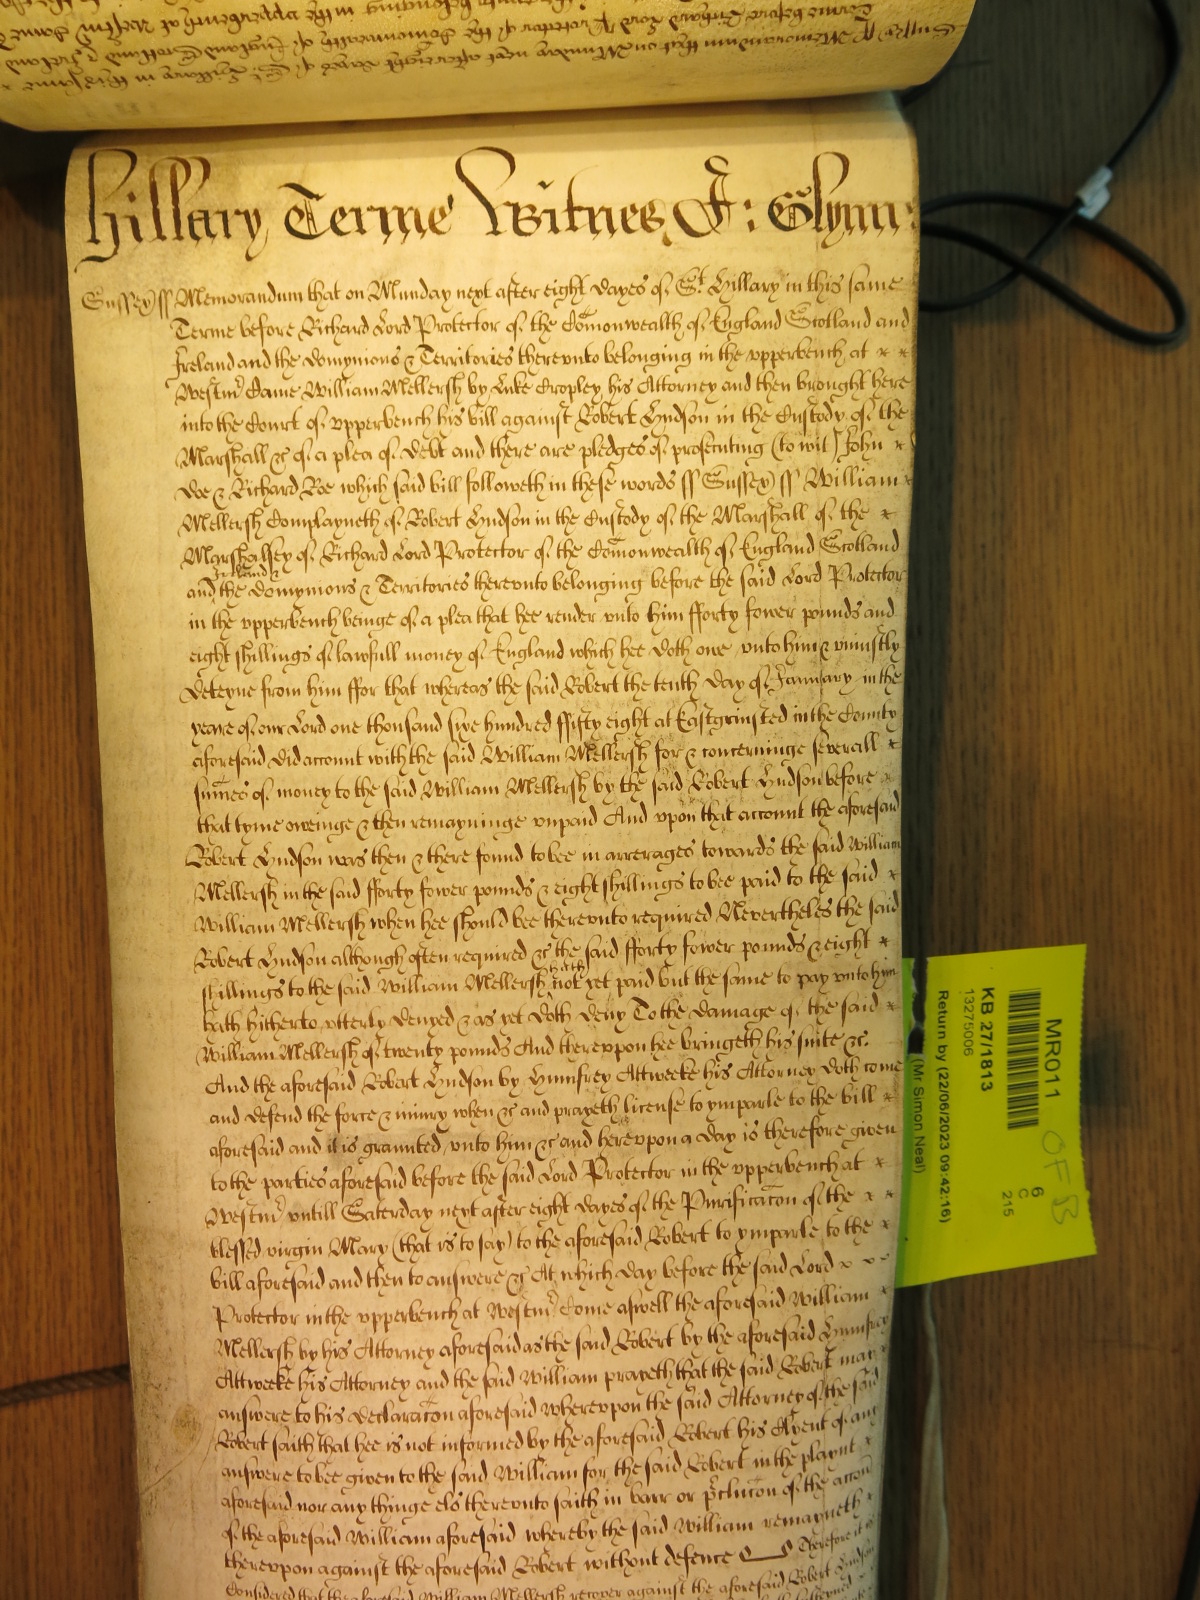 Hillary Terme Witnes J: Glynn:
Sussex ss Memorandum that on Munday next after eight dayes of St. Hillary in this same
Terme before Richard Lord Protector of the Comonwealth of England Scotland and
Ireland and the Domynions & Territories therevnto belonging in the vpperbench at x x
Westmr Came William Mellersh by Luke Cropley his Attorney and then brought here
into the Court of vpperbench his bill against Robert Hudson in the Custody of the
Marshall &c of a plea of debt and there are pledges of prosecuting (to wit) John x
Doe & Richard Roe which said bill followeth in these words ss Sussex ss William
Mellersh Complayneth of Robert Hudson in the Custody of the Marshall of the x
Marshalsey of Richard Lord Protector of the Comonwealth of England Scotland
Ireland &
and the Domynions & Territories therevnto belonging before the said Lord Protector
in the vpperbench beinge of a plea that hee render vnto him fforty fower pounds and
eight shillings of lawfull money of England which hee doth owe vnto him & vniustly
deteyne from him ffor that whereas the said Robert the tenth day of January in the
yeare of our Lord one thousand sixe hundred ffifty eight at Eastgrinsted in the County
aforesaid did account with the said William Mellersh for & concerninge severall x
sumes of money to the said William Mellersh by the said Robert Hudson before x
that tyme oweinge & then remayninge vnpaid And vpon that account the aforesaid
Robert Hudson was then & there found to bee in arrerages towards the said William
Mellersh in the said fforty fower pounds & eight shillings to bee paid to the said x
William Mellersh when hee should bee therevnto required Nevertheles the said
Robert Hudson although often required &c the said fforty fower pounds & eight x
hath
shillings to the said William Mellersh not yet paid but the same to pay vnto him
hath hitherto vtterly denyed & as yet doth deny To the damage of the said x
William Mellersh of twenty pounds And therevpon hee bringeth his suite &c.
And the aforesaid Robert Hudson by Humfrey Attweeke his Attorney doth come
and defend the force & iniury when &c and prayeth license to ymparle to the bill x
aforesaid and it is graunted vnto him &c and herevpon a day is therefore given
to the parties aforesaid before the said Lord Protector in the vpperbench at x
Westmr vntill Saterday next after eight dayes of the Purificacon of the x x
blessed virgin Mary (that is to say) to the aforesaid Robert to ymparle to the x
bill aforesaid and then to answere &c At which day before the said Lord x x x
Protector in the vpperbench at Westmr Come aswell the aforesaid William x
Mellersh by his Attorney aforesaid as the said Robert by the aforesaid Humfrey
Attweeke his Attorney and the said William prayeth that the said Robert may
answere to his declaracon aforesaid wherevpon the said Attorney of the said
Robert saith that hee is not informed by the aforesaid Robert his Clyent of any
answere to bee given to the said William for the said Robert in the playnt x
aforesaid nor any thinge els therevnto saith in barr or pclucon of the accon
of the aforesaid William aforesaid whereby the said William remayneth x
therevpon against the aforesaid Robert without defence Therefore it is
Considered that the aforesaid William Mellersh recover against the aforesaid Robert Hudson
MR011
KB 27/1813
13275006
Return by (22/06/2023 09:42:16)
(Mr Simon Neal)
6
C
215
OFB